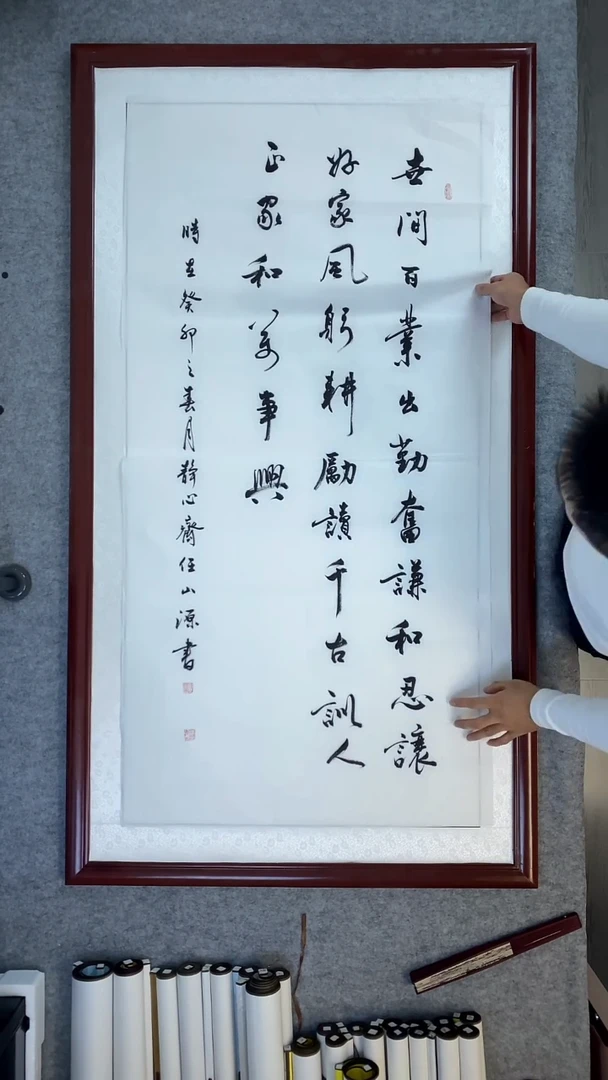 世間百業出勤奮謙和忍讓
好家風躬耕勵讀千古訓人
正家和萬事興
時在癸卯之春月靜心齋任山源書